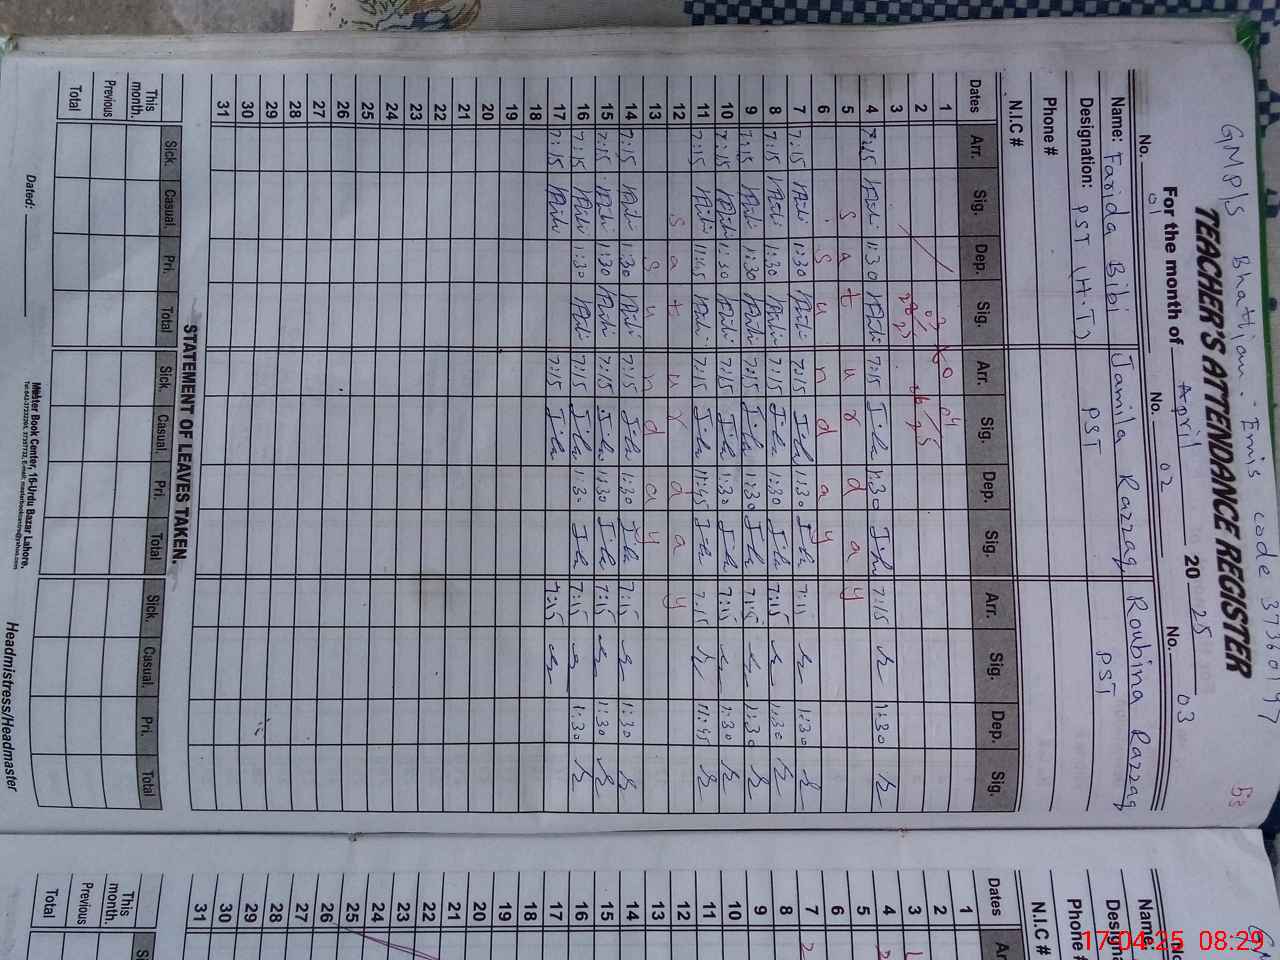 GMP/S Bhattian. Emis code 37360197 53
TEACHER'S ATTENDANCE REGISTER
For the month of April 2025
No. 01 No. 02 No. 03
Name: Farida Bibi Jamila Razzaq Roubina Razzaq
Designation: PST (H.T) PST PST
Phone #
N.I.C #
Dates Arr. Sig. Dep. Sig. Arr. Sig. Dep. Sig. Arr. Sig. Dep. Sig.
1
2
3
4 7:15 1:30 7:15 1:30 7:15 1:30
5 Saturday
6 Sunday
7 7:15 1:30 7:15 1:30 7:15 1:30
8 7:15 1:30 7:15 1:30 7:15 1:30
9 7:15 1:30 7:15 1:30 7:15 1:30
10 7:15 1:30 7:15 1:30 7:15 1:30
11 7:15 11:45 7:15 11:45 7:15 11:45
12 Saturday
13 Sunday
14 7:15 1:30 7:15 1:30 7:15 1:30
15 7:15 1:30 7:15 1:30 7:15 1:30
16 7:15 1:30 7:15 1:30 7:15 1:30
17 7:15 7:15 7:15
18
19
20
21
22
23
24
25
26
27
28
29
30
31
STATEMENT OF LEAVES TAKEN.
Sick. Casual. Pri. Total Sick. Casual. Pri. Total Sick. Cusual. Pri. Total
This month.
Previous
Total
Dated:
Master Book Center, 16-Urdu Bazar Lahore.
Headmistress/Headmaster
No.
Name:
Phone #
N.I.C #
Dates
1
2
3
4
5
6
7
8
9
10
11
12
13
14
15
16
17
18
19
20
21
22
23
24
25
26
27
28
29
30
31
This month.
Previous
Total
17.04.25 08:29